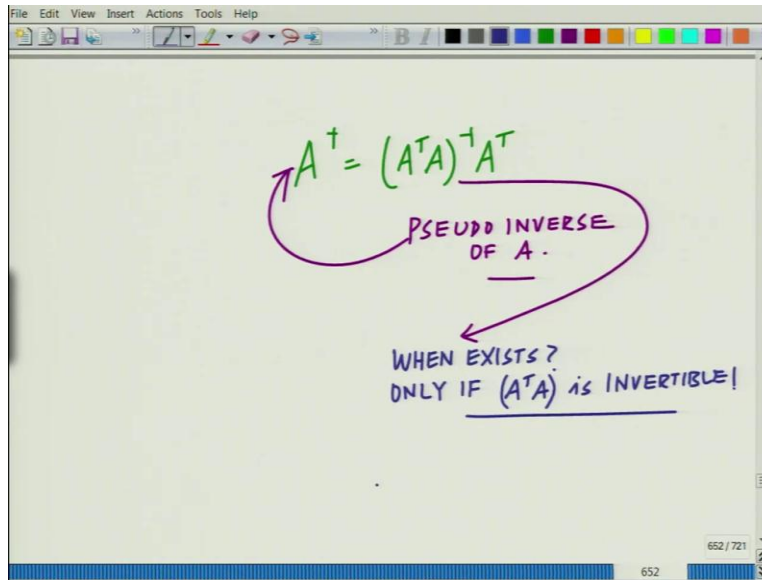 File Edit View Insert Actions Tools Help
A† = (AᵀA)⁻¹Aᵀ
PSEUDO INVERSE
OF A.
WHEN EXISTS?
ONLY IF (AᵀA) is INVERTIBLE!
652 / 721
652